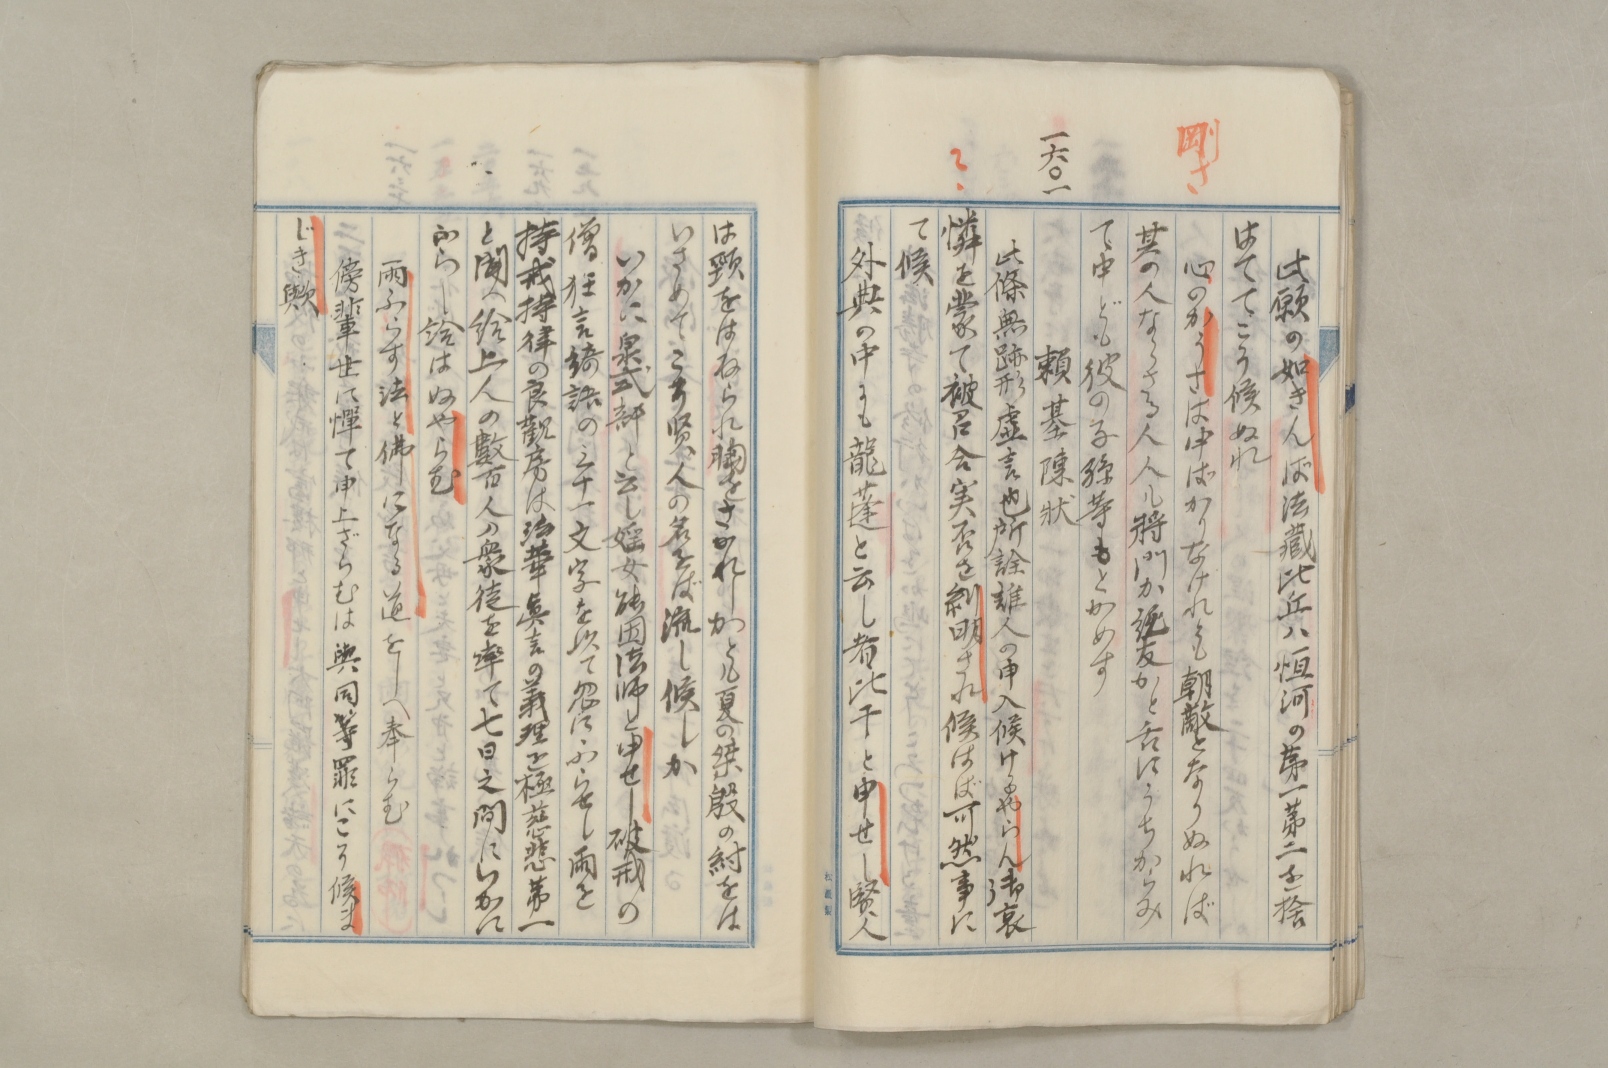 剛さ
一六〇一
此願の如きんば法藏比丘ハ恒河の第一第二を捨
はてゝこう候ぬれ
心のかうさは中ばかりなけれとも朝敵となりぬれば
其の人ならさる人々ハ將門か純友かと舌にうちからみ
て申ども彼の子孫等もとかめす
頼基陳状
此條無跡形虚言也所詮誰人の申入候けるやらん御哀
憐を蒙て被召合実否を糾明され候はば可然事に
て候
外典の中にも龍蓬と云し者比干と申せし賢人
は頸をはねられ胸をさかれしかとも夏の桀殷の紂をは
いさめてこそ賢人の名をば流し候しか
いかに泉式部と云し婬女能因法師と申せし破戒の
僧狂言綺語の三十一文字を以て忽にふらせし雨を
持戒持律の良觀房は法華眞言の義理を極慈悲第一
と聞へ給上人の數百人の衆徒を率て七日之間にいかに
ふらし給はぬやらむ
雨ふらす法と佛になる道をしへ奉らむ
傍輩世に憚て申上ざらむは與同等罪にこう候ま
じき歟